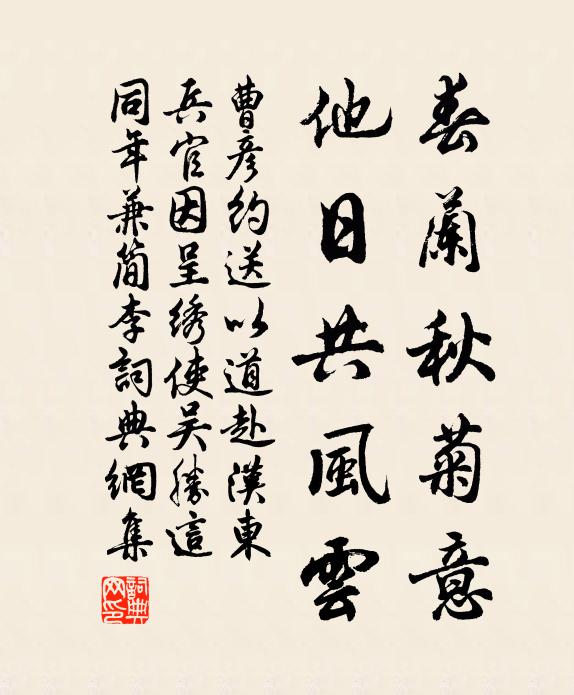 春蘭秋菊意
他日共風雲
曹彦約送以道赴漢東
兵官因呈綉使吴勝這
同年兼簡李詞典網集
詞典网印